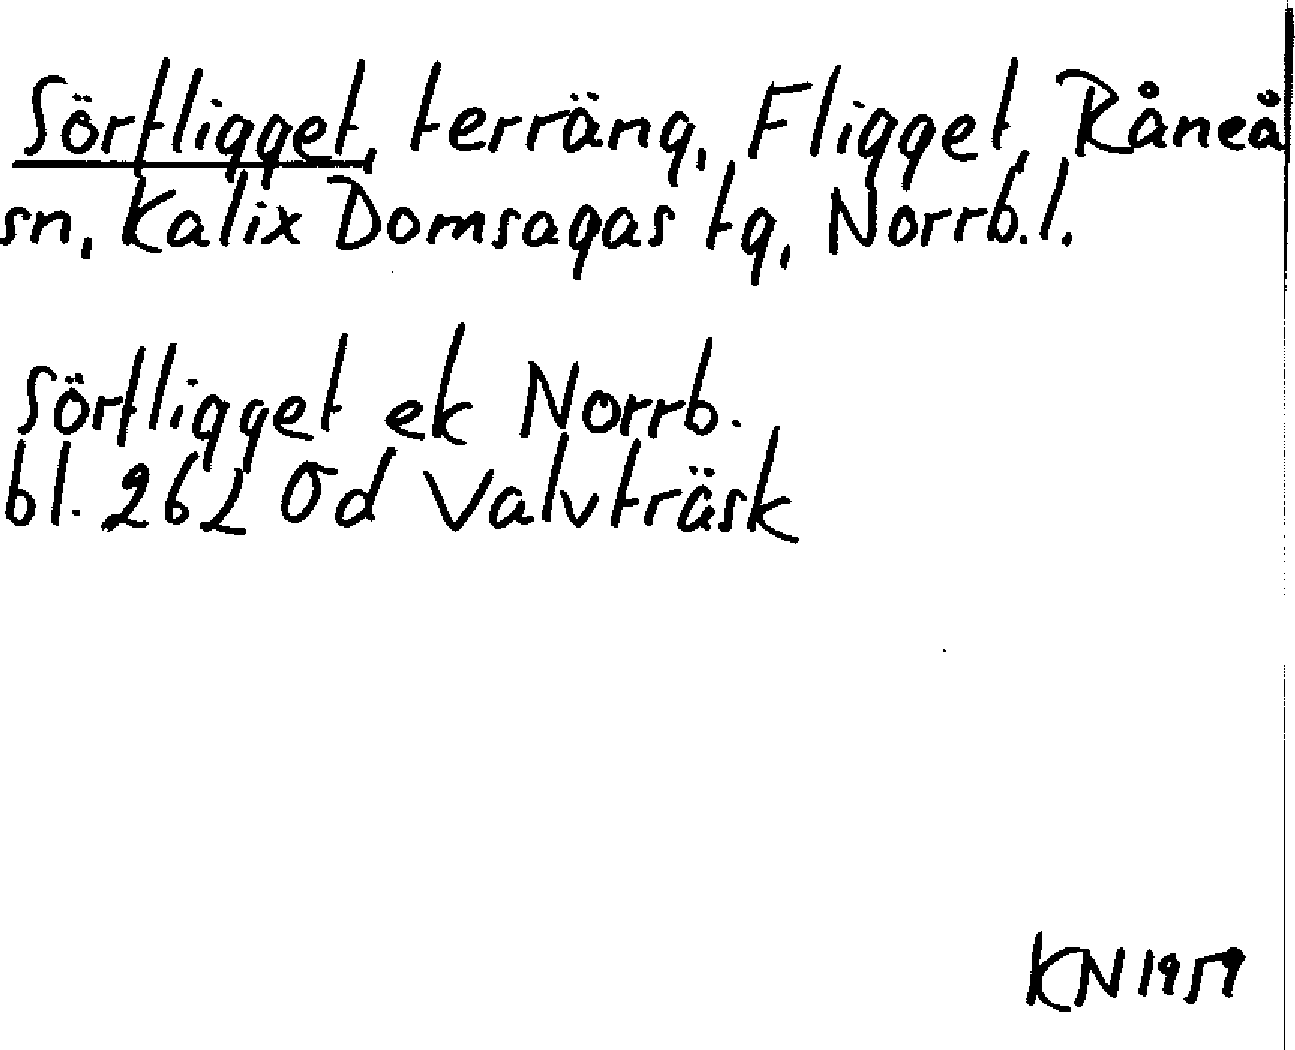 Sörfligget, terräng, Fligget, Råneå
sn, Kalix Domsagas tg, Norrb.l.
Sörfligget ek Norrb.
bl. 262 Öd Valvträsk
KN 1959